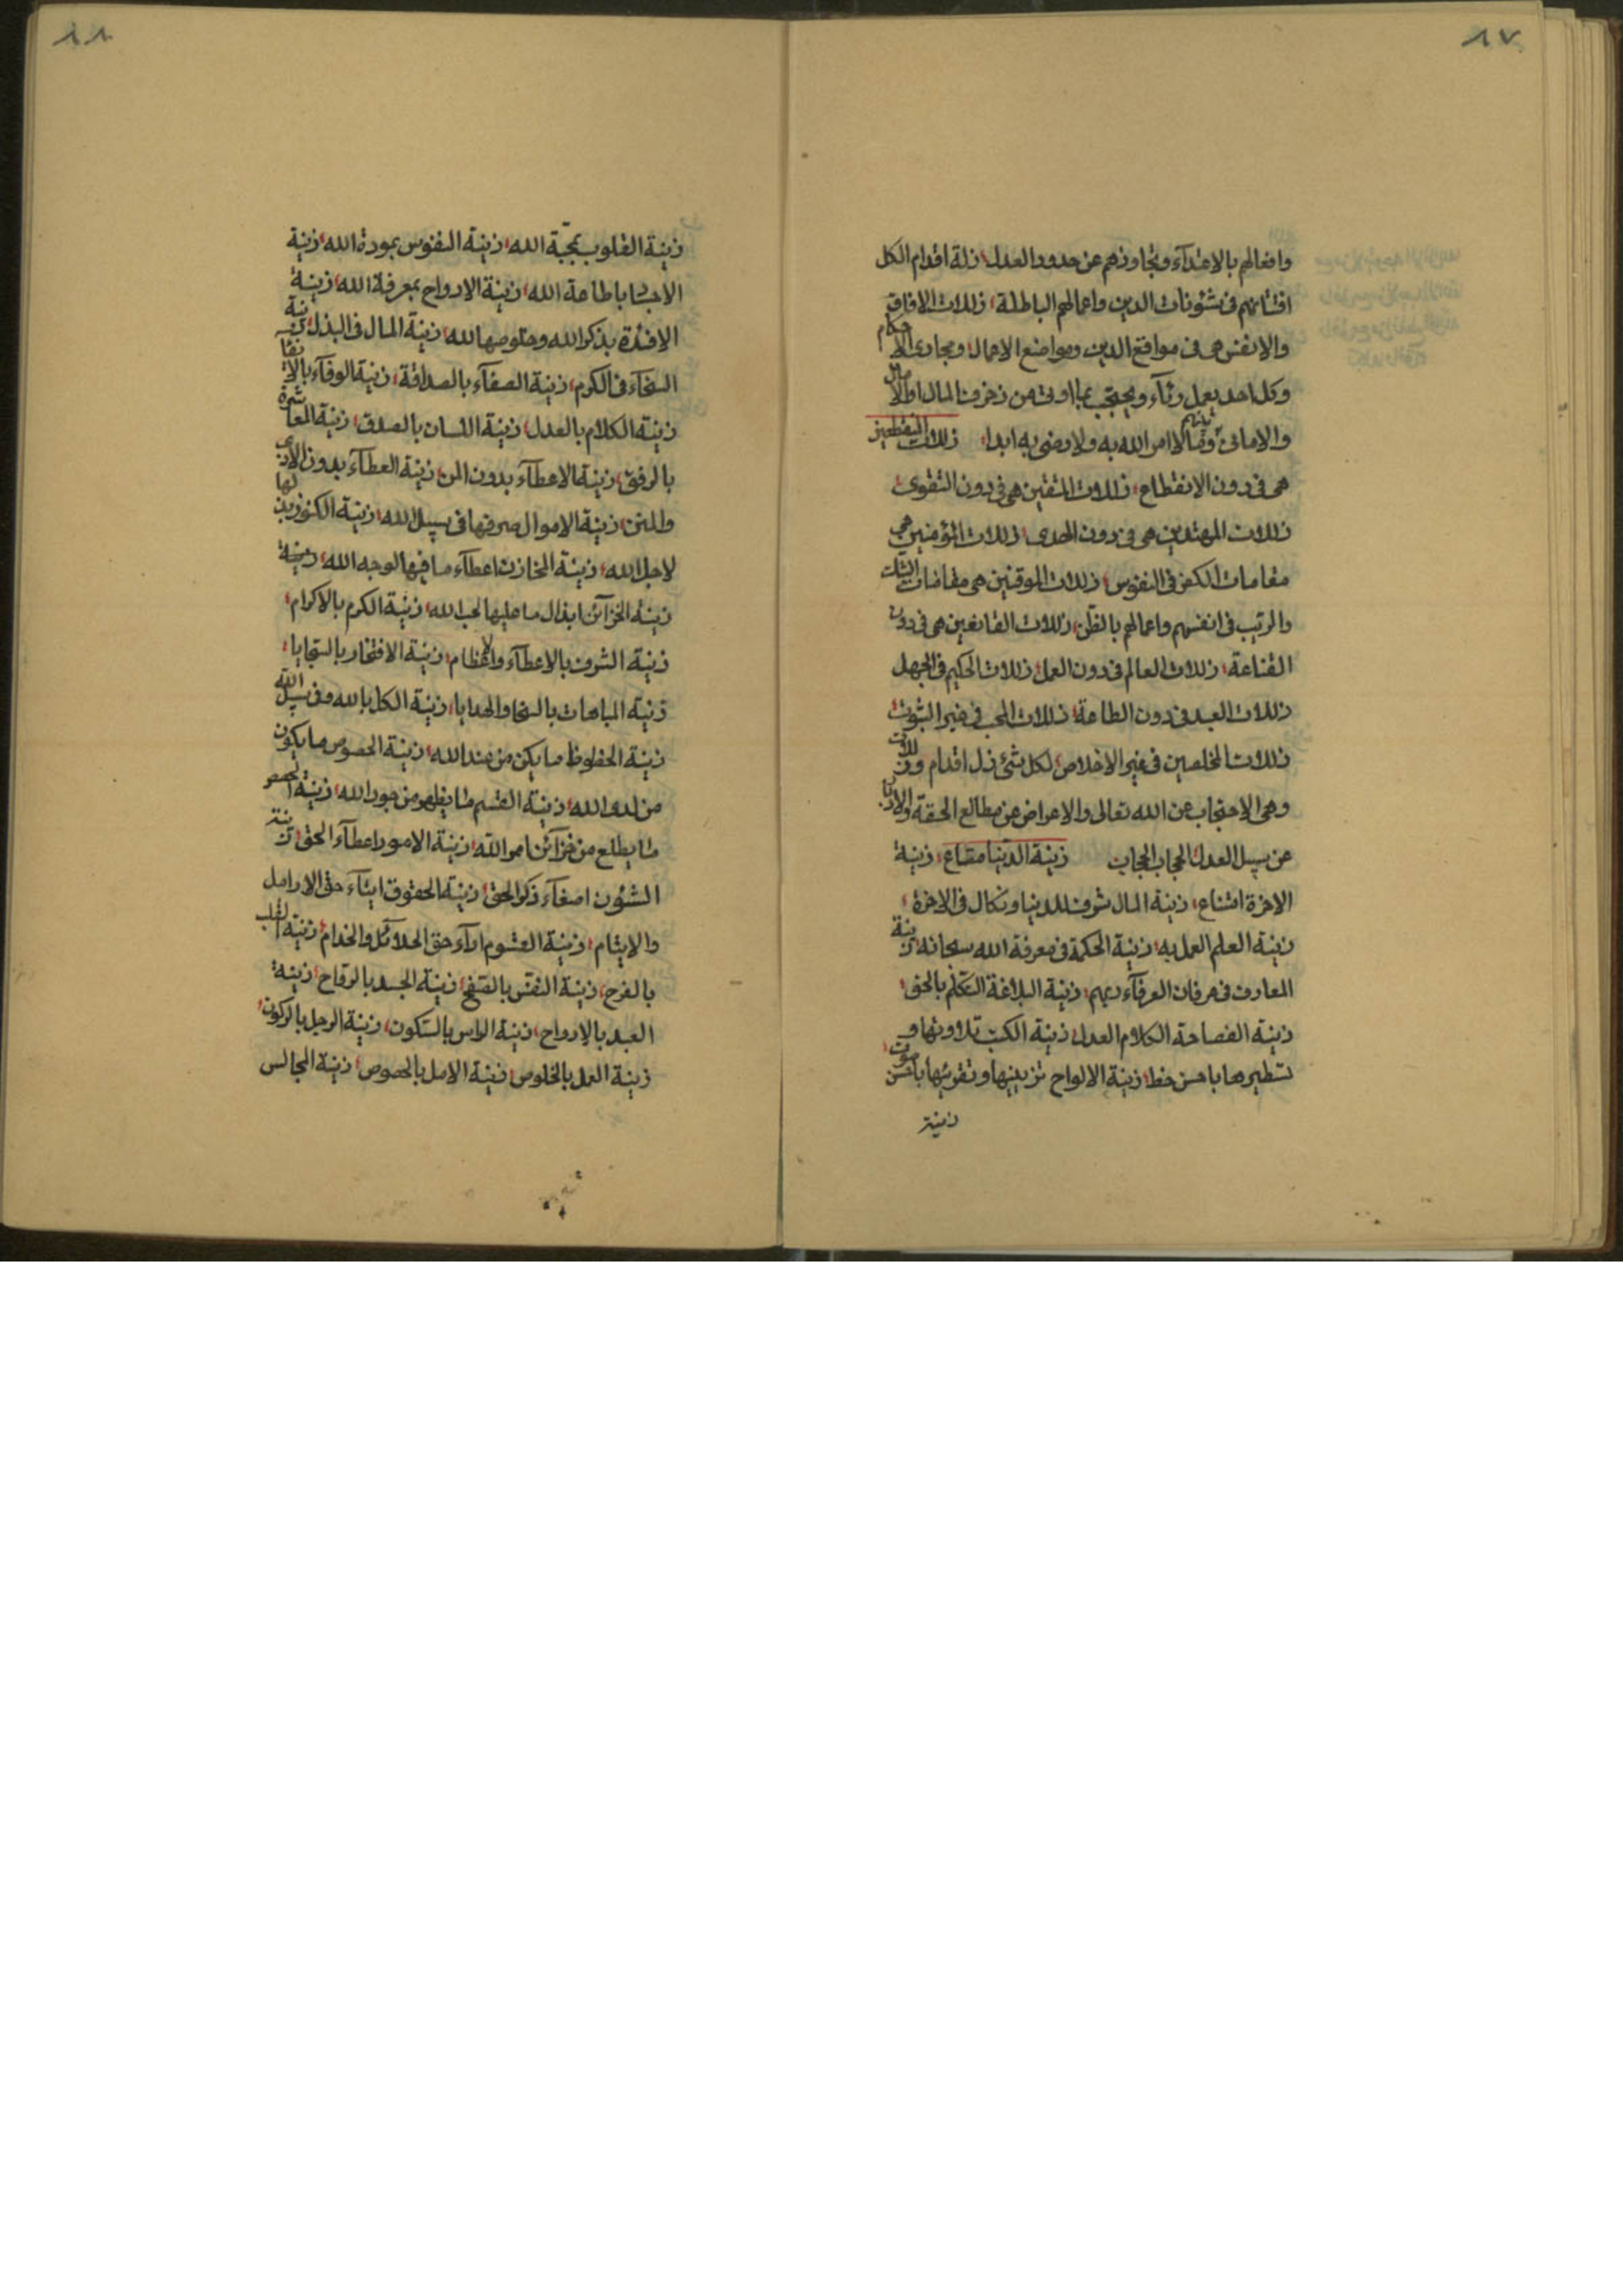 ٨٧
وافعالهم بالاعتدآء وتجاوزهم عن حدود العدل؛ زلة اقدام الكل
افتتانهم فى شئونات الدين واعمالهم الباطلة؛ زلات الافاق
والانفس هى فى مواقع الدين ومواضع الاعمال؛ ومجارى الاحكام
وكل احد يعمل رئآء ويحتجب بما اوتى من زخرف المال او الامال
والامانى الا امر الله به ولا رضى به ابدا؛ زلات المنقطعين
هى فى دون الانقطاع؛ زلات المتقين هى فى دون التقوى؛
زلات المهتدين هى فى دون الهدى؛ زلات المؤمنين هى
مقامات الكفر فى النفوس؛ زلات الموقنين هى مقامات الشك
والريب فى انفسهم واعمالهم بالظن؛ زلات القانعين هى فى دون
القناعة؛ زلات العالم فى دون العمل؛ زلات الحكيم فى الجهل
زلات العبد فى دون الطاعة؛ زلات المحب فى غير الثبوت؛
زلات المخلصين فى غير الاخلاص؛ لكل شئ زل اقدام وزلات
وهى الاحتجاب عن الله تعالى والاعراض عن مطالع الحقة والادبار
عن سبيل العدل الحجاب الحجاب زينة الدنيا متاع؛ زينة
الاخرة امتناع؛ زينة المال شرف للدنيا ونكال فى الاخرة؛
زينة العلم العمل به؛ زينة الحكمة فى معرفة الله سبحانه؛ زينة
المعارف فى عرفان العرفآء ربهم؛ زينة البلاغة التكلم بالحق؛
زينة الفصاحة الكلام العدل؛ زينة الكتب تلاوتها و
تسطيرها باحسن خط؛ زينة الالواح تزيينها وتقرئتها باحسن صوت؛
زينة
٨٨
زينة القلوب بمحبّة الله؛ زينة النفوس بمودة الله؛ زينة
الاجساد باطاعة الله؛ زينة الارواح بمعرفة الله؛ زينة
الافئدة بذكر الله وخلوصها لله؛ زينة المال فى البذل؛ زينة
السخآء فى الكرم؛ زينة الصفآء بالصداقة؛ زينة الوفآء بالاتقآ
زينة الكلام بالعدل؛ زينة اللسان بالصدق؛ زينة المعاشرة
بالرفق؛ زينة الاعطآء بدون المن؛ زينة العطآء بدون الاذى
والمنن؛ زينة الاموال صرفها فى سبيل الله؛ زينة الكنوز بذلها
لاجل الله؛ زينة المخازن اعطآء ما فيها لوجه الله؛ زينة
زينة الخزآئن ابذال ما عليها لحب الله؛ زينة الكرم بالاكرام؛
زينة الشرف بالاعطآء والاعظام؛ زينة الافتخار بالسجايا؛
زينة المباهات بالسخا والهدايا؛ زينة الكل بالله وفى سبيل الله
زينة الحظوظ ما يكن من عند الله؛ زينة الحصوص ما يكون
من لدى الله؛ زينة القسم ما يظهر من جود الله؛ زينة الحصر
ما يطلع من خزآئن امر الله؛ زينة الامور اعطآء الحق؛ زينة
الشئون اصغآء ذكر الحق؛ زينة الحقوق ايتآء حق الارامل
والايتام؛ زينة القسوم ادآء حق الحلائل والخدام؛ زينة القلب
بالفرح؛ زينة النفس بالفتح؛ زينة الجسد بالرقاح؛ زينة
العبد بالارواح؛ زينة الراس بالسكون؛ زينة الرجل بالركون؛
زينة العمل بالخلوص؛ زينة الامل بالحصوص؛ زينة المجالس